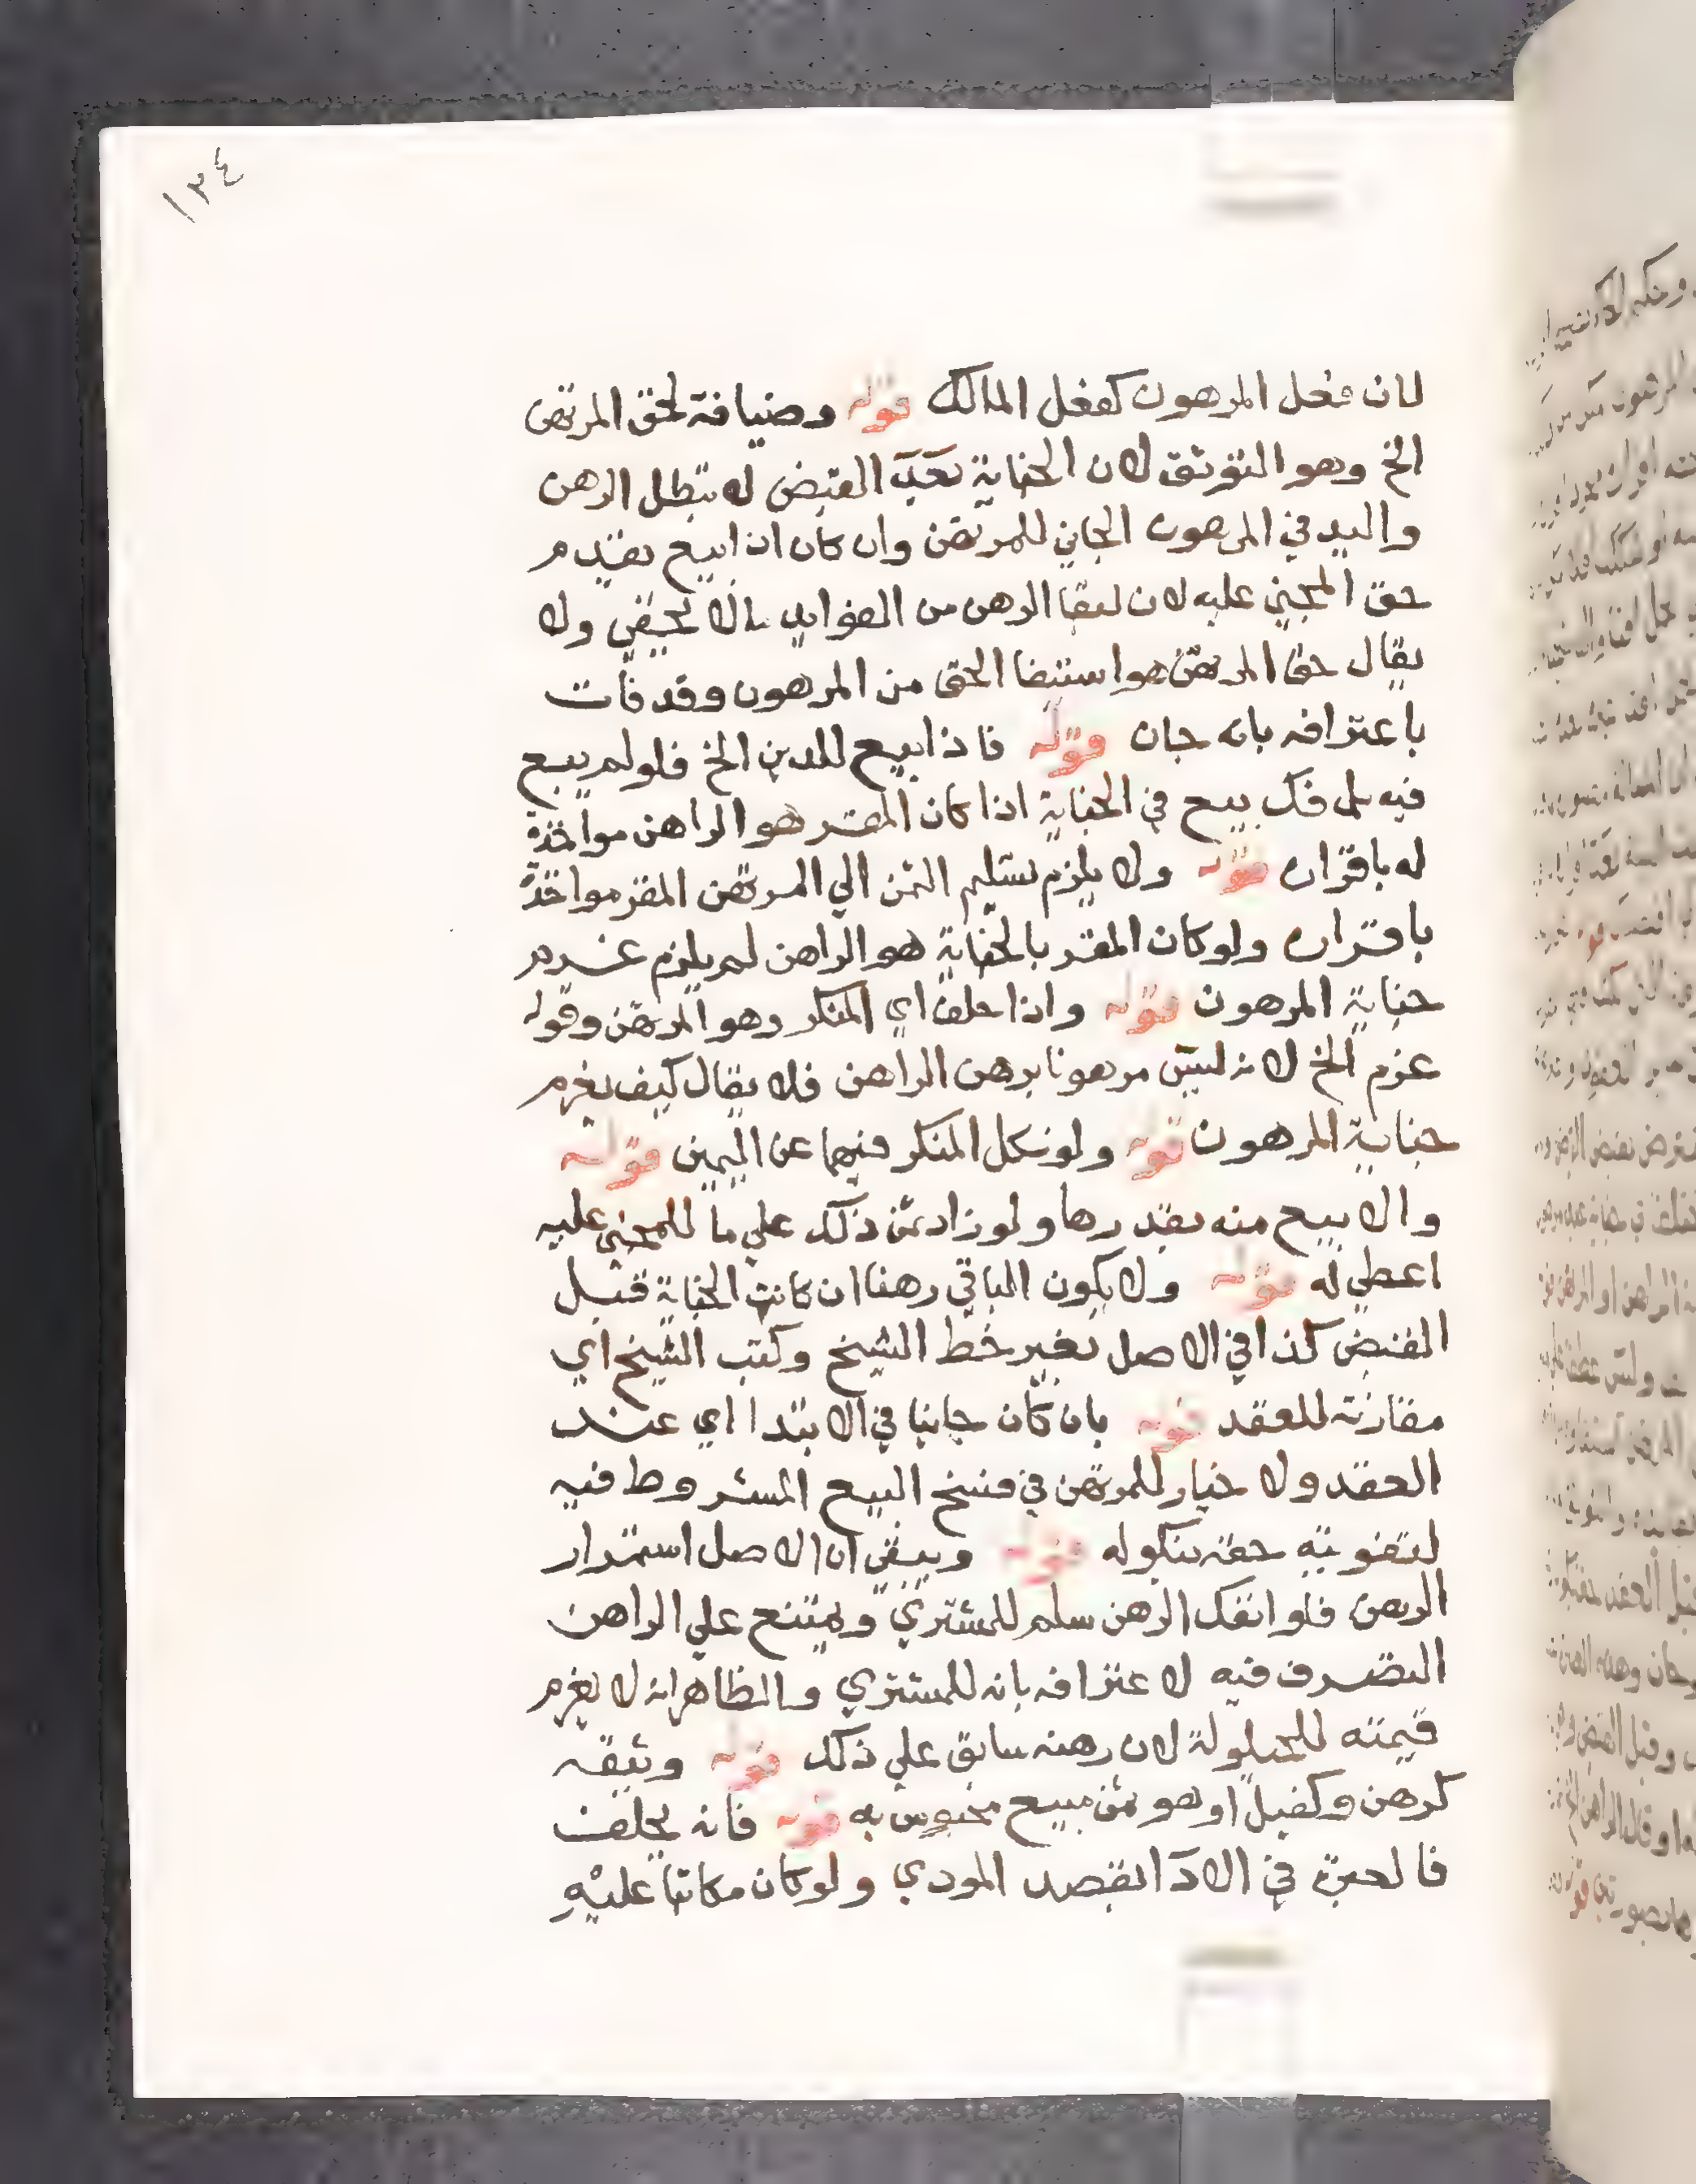 ١٣٤
لان فعل المرهون كفعل المالك قوله وصيانة لحق المرتهن
الخ وهو التوثق لان الجناية بعد القبض لا تبطل الرهن
واليد في المرهون الجاني للمرتهن وان كان اذا بيع يقدم
حق المجني عليه لان لبقا الرهن من الفوايد مالا يخفي ولا
يقال حق المرتهن هو استيفا الحق من المرهون وقد فات
باعترافه بانه جان قوله فاذا بيع للدين الخ فلو لم يبع
فيه بل فك بيع في الجناية اذا كان المقر هو الراهن مواخذة
له باقراره قوله ولا يلزم تسليم الثمن الي المرتهن المقر مواخذة
باقراره ولو كان المقر بالجناية هو الراهن لم يلزم غرم
جناية المرهون قوله واذا حلف اي المنكر وهو المرتهن وقوله
غرم الخ لانه ليس مرهونا برهن الراهن فلا يقال كيف يغرم
جناية المرهون قوله ولو نكل المنكر فيهما عن اليمين قوله
والا بيع منه بقدرها ولو زاد ثمن ذلك علي ما للمجني عليه
اعطي له قوله ولا يكون الباقي رهنا ان كانت الجناية قبل
القبض كذا في الاصل بغير خط الشيخ وكتب الشيخ اي
مقارنة للعقد قوله بان كان جانيا في الابتدا اي عند
العقد ولا خيار للمرتهن في فسخ البيع المشروط فيه
لتفويته حقه بنكوله قوله ويبقي ان الاصل استمرار
الرهن فلو انفك الرهن سلم للمشتري ويمتنع علي الراهن
التصرف فيه لاعترافه بانه للمشتري والظاهر انه لا يغرم
قيمته للحيلولة لان رهنه سابق علي ذلك قوله وثيقه
كرهن وكفيل او هو ثمن مبيع محبوس به قوله فانه يحلف
فالعبرة في الادآ بقصد المودي ولو كان مكاتبا عليه